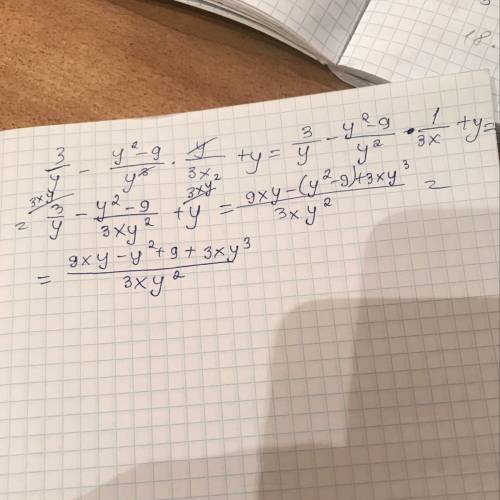 18.
3/y - (y²-9)/y³ · y/3x₂ + y = 3/y - (y²-9)/y² · 1/3x + y =
= 3xy 3/y - (y²-9)/3xy² + 3xy y = (9xy-(y²-9)+3xy³)/3xy² =
= (9xy-y²+9+3xy³)/3xy²